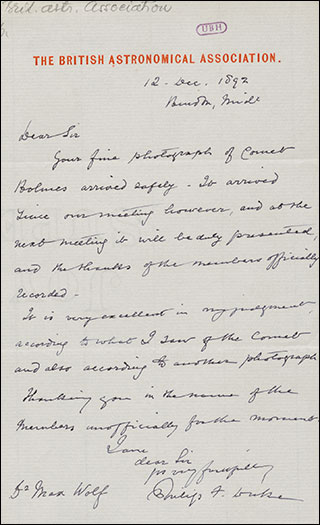 Brit. astr. Association
UBH
THE BRITISH ASTRONOMICAL ASSOCIATION.
12. Dec. 1892
Dear Sir
Your fine photograph of Comet
Holmes arrived safely - It arrived
since our meeting however, and at the
next meeting it will be duly presented,
and the thanks of the members officially
recorded -
It is very excellent in my judgment,
according to what I saw of the Comet
and also according to another photograph
Thanking you in the name of the
Members unofficially for the moment.
I am
dear Sir
yrs very faithfully
Dr Max Wolf
Philip F. Duke